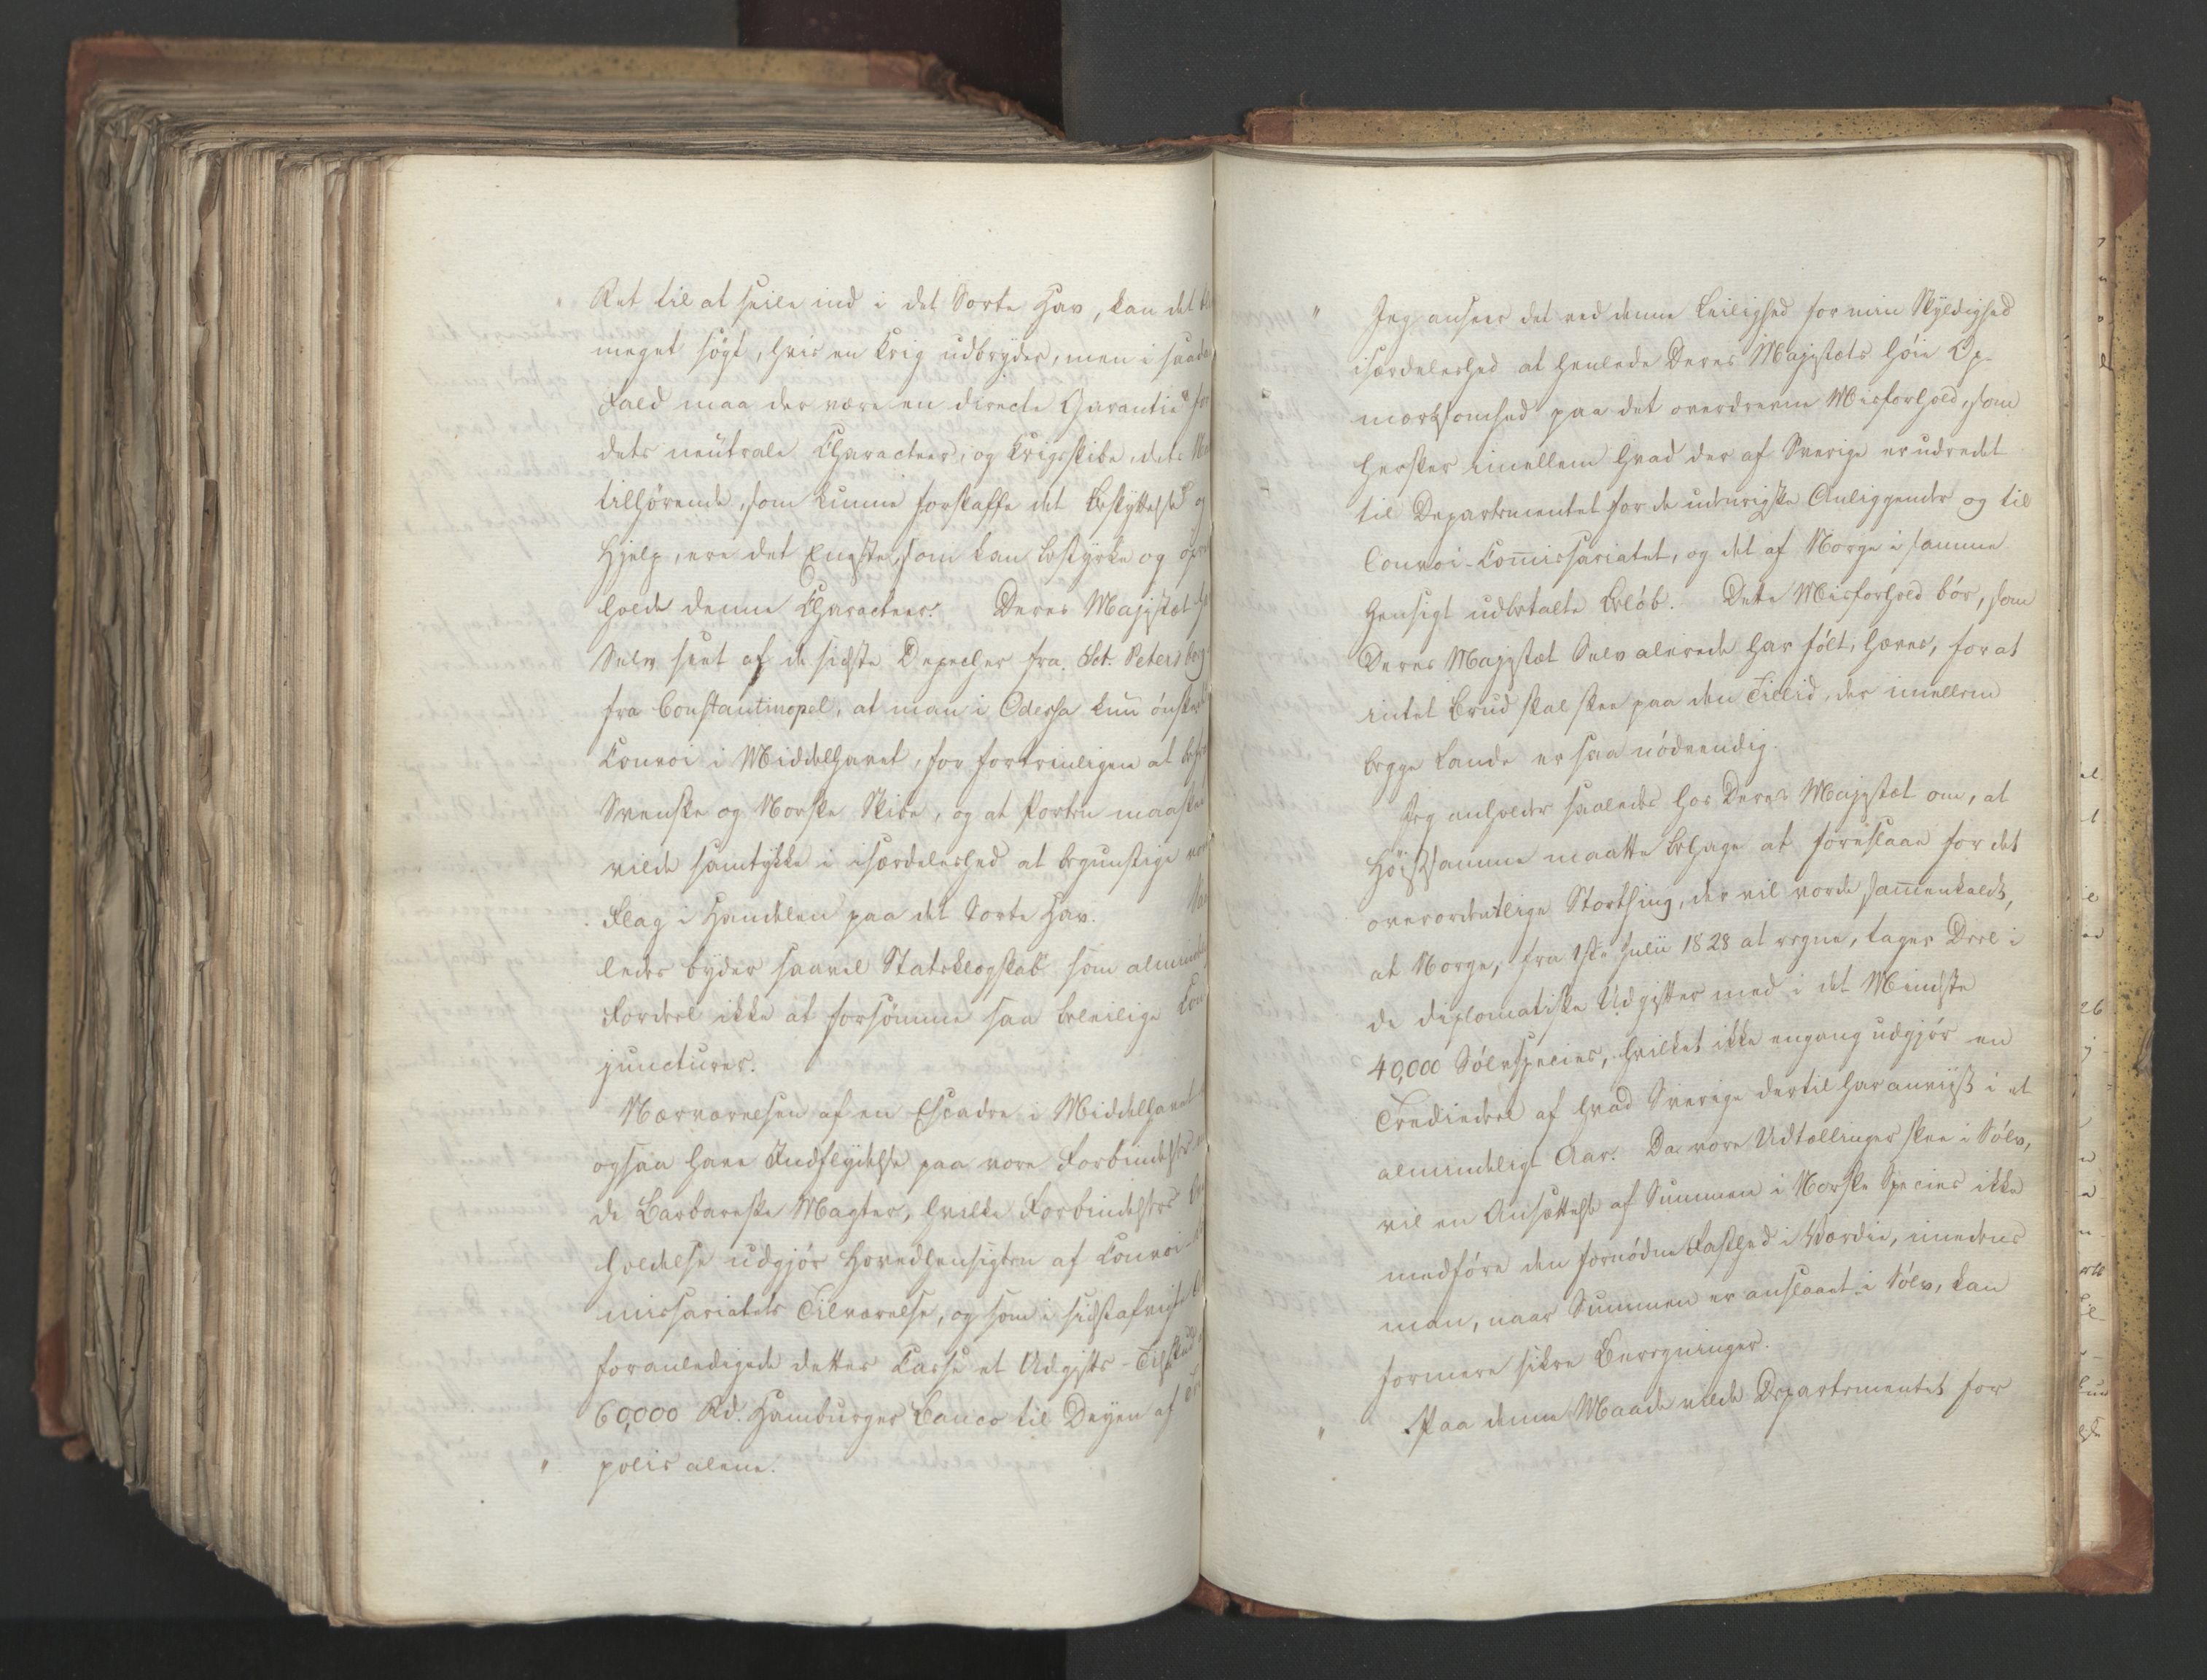 Ret til at seile ind i det Sorte Hav, kan det
meget søgt, hvis en Krig udbryder, men i saada
Fald maa der være en directe Garantie for
dets neutrale Characteer, og Krigsskibe, dets
tilhørende, som kunne forskaffe det Beskyttelse og
Hjelp, ere det Eneste, som kan bestyrke og opret
holde denne Characteer. Deres Majestæt
Selv seet af de sidste Depecher fra Sct. Petersborg
fra Constantinopel, at man i Odessa kun ønskede
Convoi i Middelhavet, for fortrinligen at
Svenske og Norske Skibe, og at Porten maaskee
vilde samtykke i isærdeleshed at begunstige vort
Flag i Handelen paa det Sorte Hav. Saa
ledes byder saavel Statsklogskab som almindelig
Fordeel ikke at forsømme saa beleilige Con
juncturer.
Nærværelsen af en Escadre i Middelhavet
ogsaa have Indflydelse paa vore Forbindelser
de Barbareske Magter, hvilke Forbindelsers
holdelse udgjør Hovedhensigten af Convoi-
missariatets Tilværelse, og som i sidstafvigte
foranledigede dettes Casse et Udgifts-Tilskud
60,000 Rd. Hamburger Banco til Deyen af Tri
" polis alene.
" Jeg anseer det ved denne Leilighed for min Skyldighed
isærdeleshed at henlede Deres Majestæts høie Op-
mærksomhed paa det overdrevne Misforhold, som
hersker imellem hvad der af Sverige er udredet
til Departementet for de udenrigske Anliggender og til
Convoi-Commissariatet, og det af Norge i samme
Hensigt udbetalte Beløb. Dette Misforhold bør, som
Deres Majestæt Selv allerede har følt, hæves, for at
intet Brud skal skee paa den Tillid, der imellem
begge Lande er saa nødvendig.
Jeg anholder saaledes hos Deres Majestæt om, at
Høistsamme maatte behage at foreslaae for det
overordentlige Storthing, der vil vorde sammenkaldt,
at Norge, fra 1ste Julii 1828 at regne, tager Deel i
de diplomatiske Udgifter med i det Mindste
40,000 Sølvspecies, hvilket ikke engang udgjør en
Trediedeel af hvad Sverige dertil har anviist i et
almindeligt Aar. Da vore Udtællinger skee i Sølv,
vil en Ansættelse af Summen i Norske Species ikke
medføre den fornødne Fasthed i Værdie, imedens
man, naar Summen er anslaaet i Sølv, kan
formere sikre Beregninger.
" Paa denne Maade vilde Departementet for